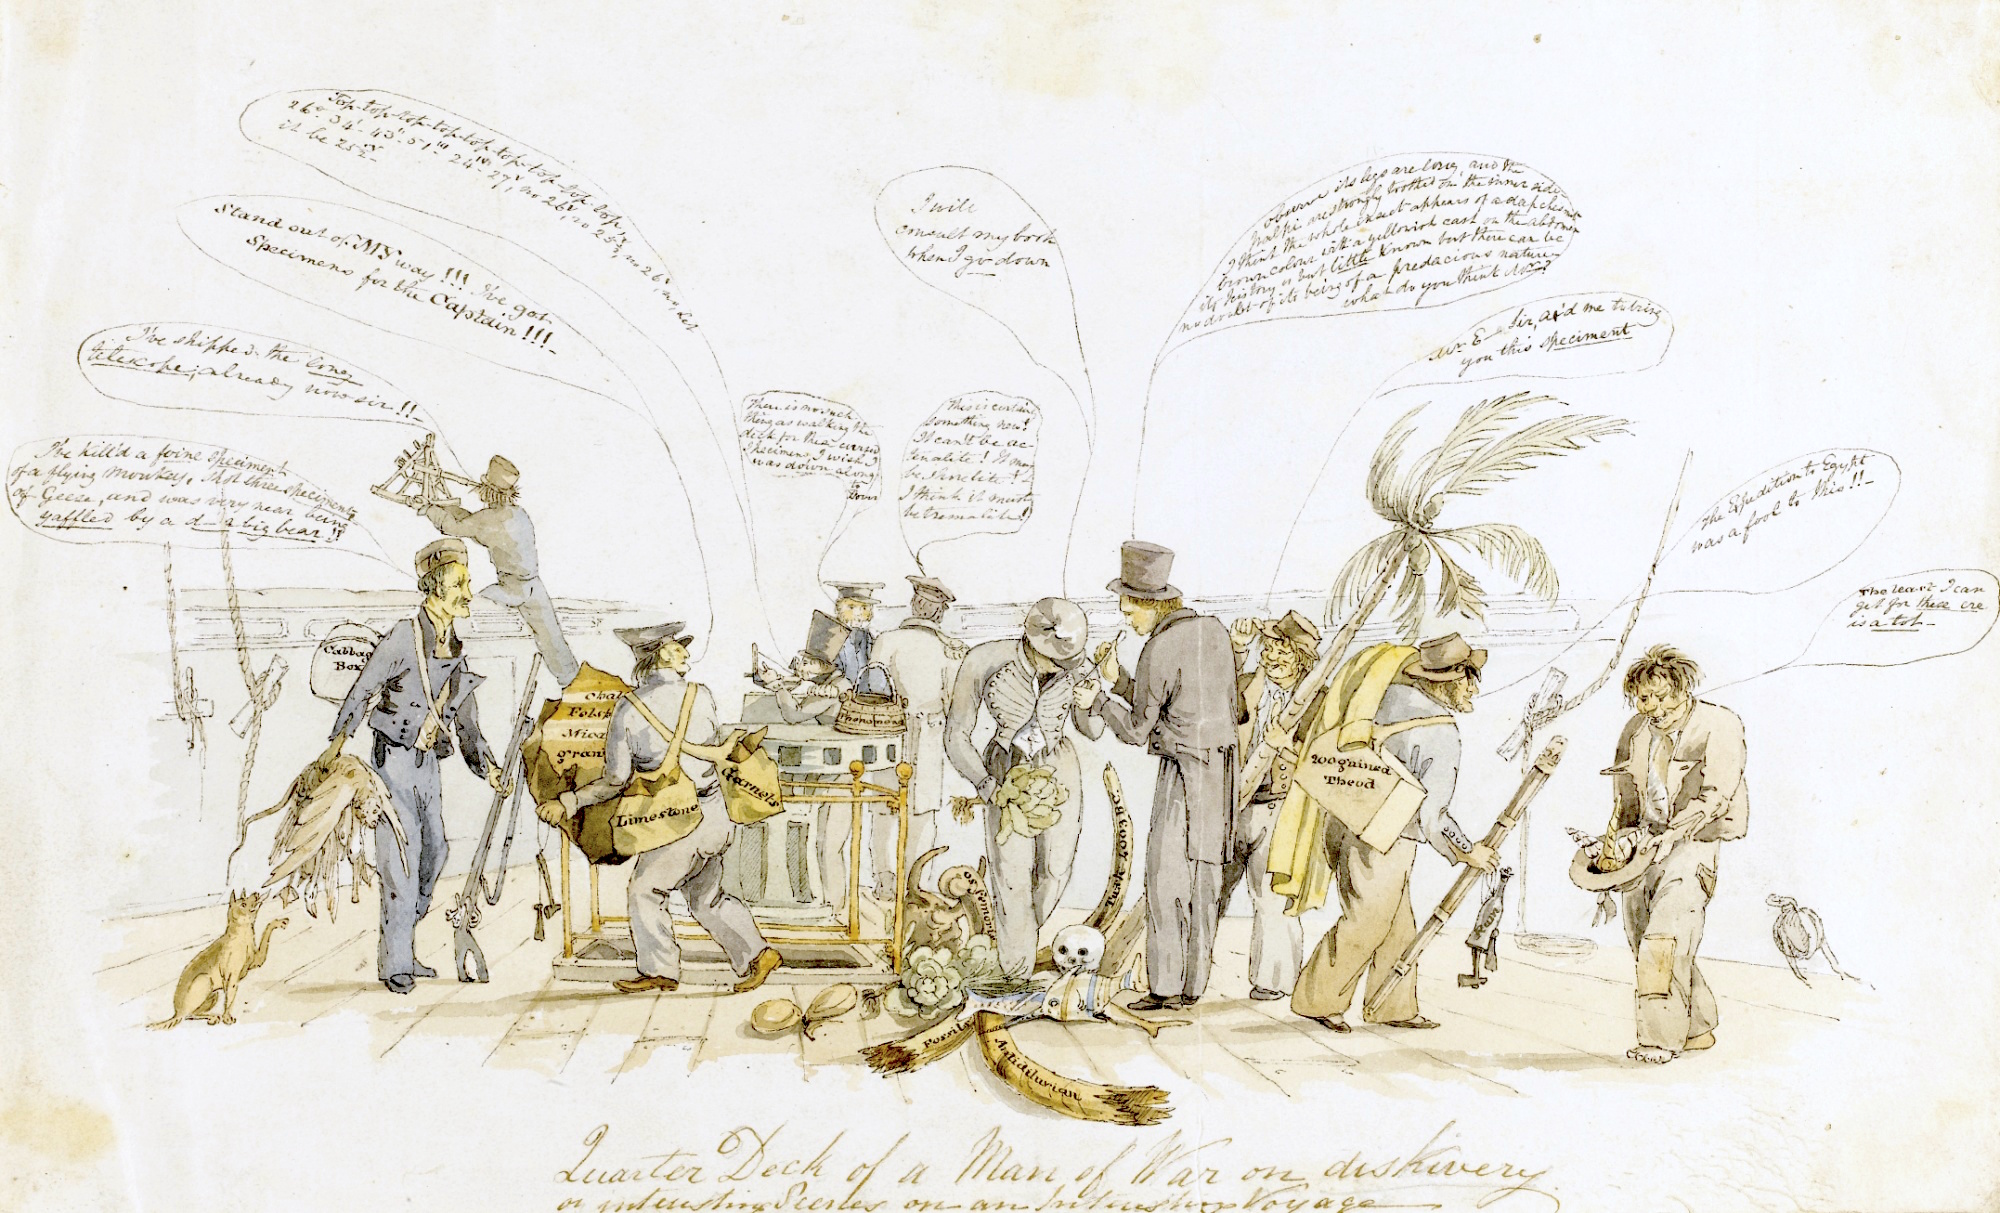 Top-top-top-top-top-top-top-top-top-top,
26°- 34'- 43"- 51'''- 24 - 27, no 26, no 25, no 26, no, let
it be 25½-
Stand out of MY way!!! I've got
Specimens for the Captain!!!-
I've shipped the long
telescope, already now sir!!-
I've kill'd a foine speciment
of a flying monkey. Shot three speciments
of Geese, and was very near being
yaffled by a d- - a big bear!!
There is no such
thing as walking the
deck for these cursed
specimens, I wish I
was down along
to Dover
This is certainly
something new!
It cant be ac
tinalite! It may
be
I think it must
be tremalite!
I will
consult my book
when I go down
observe its legs are long, and the
palpi are strongly toothed on the inner side,
I think the whole insect appears of a dap chesnut
brown colour with a yellowish cast on the abdomen
its history is but little known but there can be
no doubt of its being of a predacious nature
what do you think Mr-?
Mr. E- Sir, ax'd me to bring
you this speciment
The Expedition to Egypt
was a fool to this!!-
The least I can
get for these ere
is a tot-
Cabbag
Box
Chal
Felsp
Mica
gran
Limestone
Garnets
Phenomena
os femoris
Tusk 4,000 B.C.
Fossils
Antidiluvian
200 gained
Theod
Rum
Quarter Deck of a Man of War on diskivery
or interesting Scenes on an Interesting Voyage